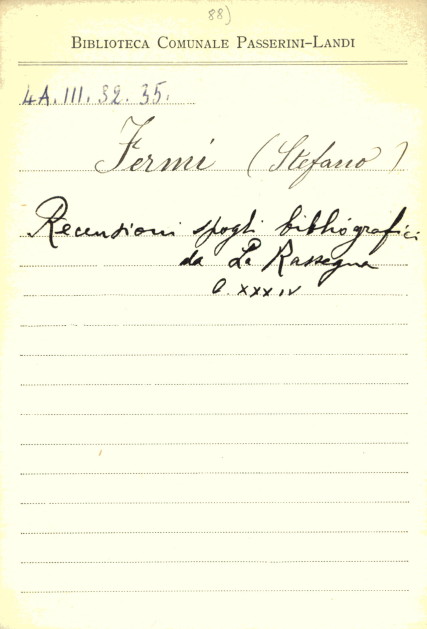 88)
BIBLIOTECA COMUNALE PASSERINI-LANDI
4A.III.32.35.
Fermi (Stefano)
Recensioni spogli bibliografici
da La Rassegna
a. XXXIV